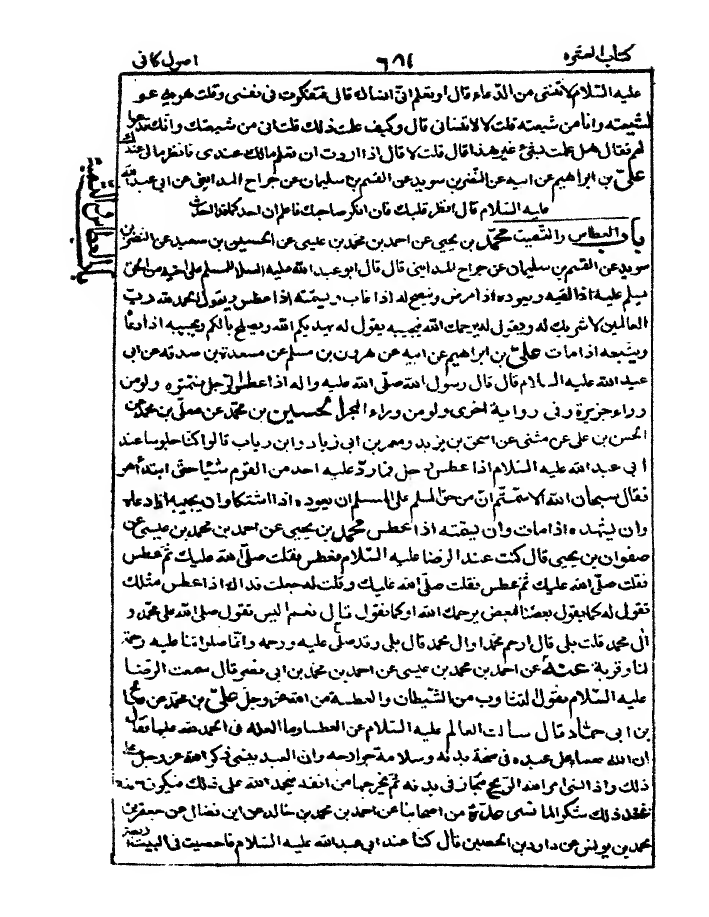 كتاب العشره
٦٨٤
اصول كافي
عليه السّلام لا تنسني من الدّعاء قال او تعلم انّي انساك قال فتفكّرت في نفسي وقلت هو يدعو
لشيعته وانا من شيعته قلت لا لا تنساني قال وكيف علمت ذلك قلت اني من شيعتك وانك تدعوا
لهم فقال هل علمت بشئ غير هذا قال قلت لا قال اذا اردت ان تعلم مالك عندي فانظر مالي عندك
علىّ بن ابراهيم عن ابيه عن النّضر بن سويد عن القسم بن سليمان عن جراح المدايني عن ابي عبد الله
عليه السّلام قال انظر قلبك فان انكر صاحبك فاعلم ان احدكما قد احدث
باب العطاس والتّسميت محمّد بن يحيى عن احمد بن محمّد بن عيسى عن الحسين بن سعيد عن النّضر بن
سويد عن القسم بن سليمان عن جراح المدايني قال قال ابو عبد الله عليه السلام للمسلم على اخيه من الحق ان
يسلم عليه اذا لقيه ويعوده اذا مرض وينصح له اذا غاب ويسمّته اذا عطس ويقول الحمد لله ربّ
العالمين لا شريك له ويقول له يرحمك الله فيجيبه يقول له يهديكم الله ويصلح بالكم ويجيبه اذا دعا
ويتبعه اذا مات علىّ بن ابراهيم عن ابيه عن هرون بن مسلم عن مسعدة بن صدقه عن ابي
عبد الله عليه السلام قال قال رسول الله صلّى الله عليه واله اذا عطس الرّجل فسمّتوه ولو من
وراء جزيرة وفي رواية اخرى ولو من وراء البحر الحسين بن محمّد عن معلّى بن محمد عن
الحسن بن على عن مثنى عن اسحق بن يزيد ومعمر بن ابي زياد وابن رياب قالوا كنا جلوسا عند
ابي عبد الله عليه السّلام اذا عطس رجل فما ردّ عليه احد من القوم شيئا حتى ابتدأ هو
فقال سبحان الله الا سمّتّم ان من حقّ المسلم على المسلم ان يعوده اذا اشتكا وان يجيبه اذا دعاه
وان يشهده اذا مات وان يسمّته اذا عطس محمّد بن يحيى عن احمد بن محمد بن عيسى عن
صفوان بن يحيى قال كنت عند الرضا عليه السّلام فعطس فقلت صلّى الله عليك ثم عطس
فقلت صلّى الله عليك ثم عطس فقلت صلّى الله عليك وقلت له جعلت فداك اذا عطس مثلك
نقول له كما يقول بعضنا لبعض يرحمك الله او كما نقول قال نعم اليس تقول صلى الله على محمد و
آل محمد قلت بلى قال ارحم محمّدا وال محمد قال بلى وقد صلّى عليه ورحمه وانّما صلواتنا عليه رحمة
لنا وقربة عنه عن احمد بن محمد بن عيسى عن احمد بن محمد بن ابي نصر قال سمعت الرّضا
عليه السّلام يقول التثاوب من الشّيطان والعطسة من الله عزّ وجلّ علىّ بن محمّد عن صالح
بن ابي حمّاد قال سالت العالم عليه السّلام عن العطسة وما العلة في الحمد لله عليها فقال
ان لله نعما على عبده في صحّة بدنه وسلامة جوارحه وان العبد ينسى ذكر الله عز وجل على
ذلك واذا نسي امر الله الرّيح فجاز في بدنه ثم يخرجها من انفه فيحمد الله على ذلك فيكون حمده
عند ذلك شكرا لما نسى عدّة من اصحابنا عن احمد بن محمد بن خالد عن ابن فضال عن جعفر بن
محمد بن يونس عن داود بن الحصين قال كنا عند ابي عبد الله عليه السّلام فاحصيت في البيت اربعة
باب العطاس والتسمية